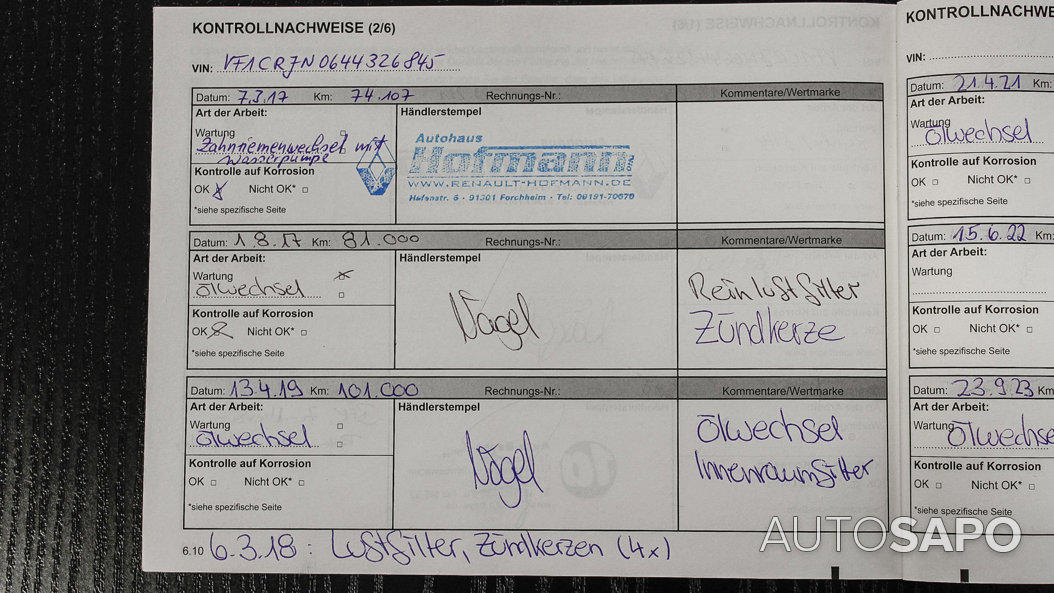 KONTROLLNACHWEISE (2/6)
VIN: VF1CRJN0644326845
Datum: 7.3.17 Km: 74.107 Rechnungs-Nr.: Kommentare/Wertmarke
Art der Arbeit: Händlerstempel
Wartung
Zahnriemenwechsel mit
Wasserpumpe
Kontrolle auf Korrosion
OK Nicht OK*
*siehe spezifische Seite
Autohaus
Hofmann
WWW.RENAULT-HOFMANN.DE
Hafenstr. 6 · 91301 Forchheim · Tel: 09191-70670
Datum: 1.8.17 Km: 81.000 Rechnungs-Nr.: Kommentare/Wertmarke
Art der Arbeit: Händlerstempel
Wartung
Ölwechsel
Kontrolle auf Korrosion
OK Nicht OK*
*siehe spezifische Seite
Nägel
Reinluftfilter
Zündkerze
Datum: 13.4.19 Km: 101.000 Rechnungs-Nr.: Kommentare/Wertmarke
Art der Arbeit: Händlerstempel
Wartung
Ölwechsel
Kontrolle auf Korrosion
OK Nicht OK*
*siehe spezifische Seite
Nägel
Ölwechsel
Innenraumfilter
6.10 6.3.18: Luftfilter, Zündkerzen (4x)
KONTROLLNACHWE
VIN:
Datum: 21.4.21 Km:
Art der Arbeit:
Wartung
Ölwechsel
Kontrolle auf Korrosion
OK Nicht OK*
*siehe spezifische Seite
Datum: 15.6.22 Km:
Art der Arbeit:
Wartung
Kontrolle auf Korrosion
OK Nicht OK*
*siehe spezifische Seite
Datum: 23.9.23 Km
Art der Arbeit:
Wartung
Ölwechse
Kontrolle auf Korrosion
OK Nicht OK*
*siehe spezifische Seite
AUTOSAPO